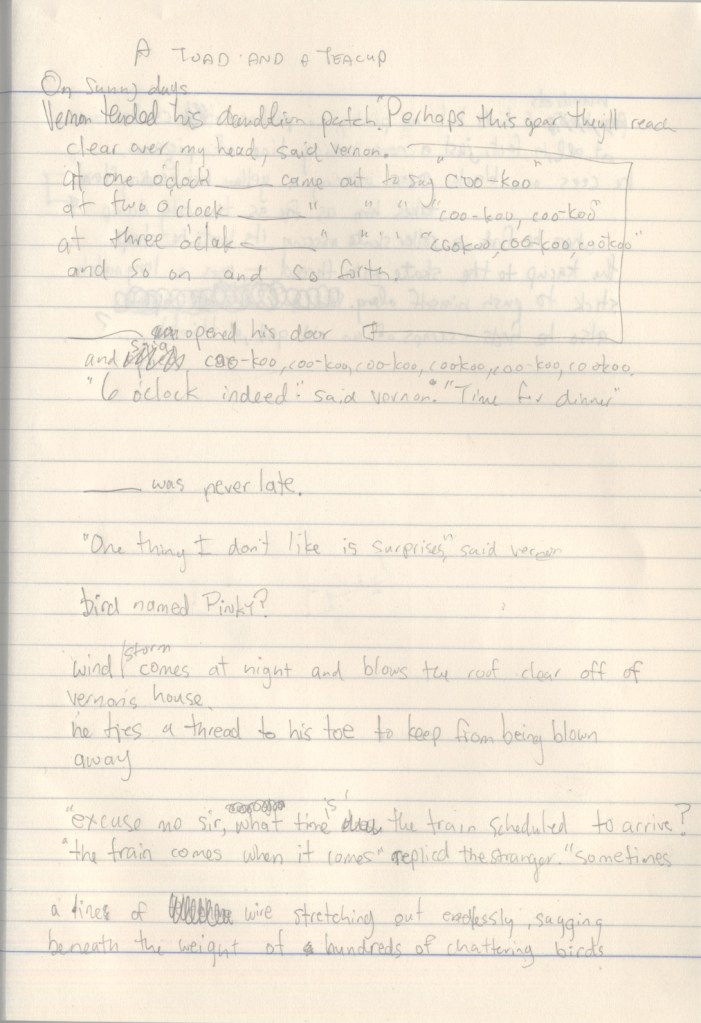 A TOAD AND A TEACUP
On sunny days
Vernon tended his dandlion patch. "Perhaps this year they'll reach
clear over my head, said vernon.
at one o'clock ____ came out to say "coo-koo"
at two o'clock ____ " " " "coo-koo, coo-koo"
at three o'clock ____ " " " "cookoo, coo-koo, cookoo"
and so on and so forth.
____ opened his door
and said coo-koo, coo-koo, coo-koo, cookoo, coo-koo, cookoo.
"6 o'clock indeed." said vernon. "Time for dinner"
____ was never late.
"One thing I don't like is surprises," said vernon
bird named Pinky?
wind/storm comes at night and blows the roof clear off of
vernon's house.
he ties a thread to his toe to keep from being blown
away
"excuse me sir, what time is the train scheduled to arrive?
"the train comes when it comes" replied the stranger. "sometimes
a lines of wire stretching out endlessly, sagging
beneath the weight of hundreds of chattering birds